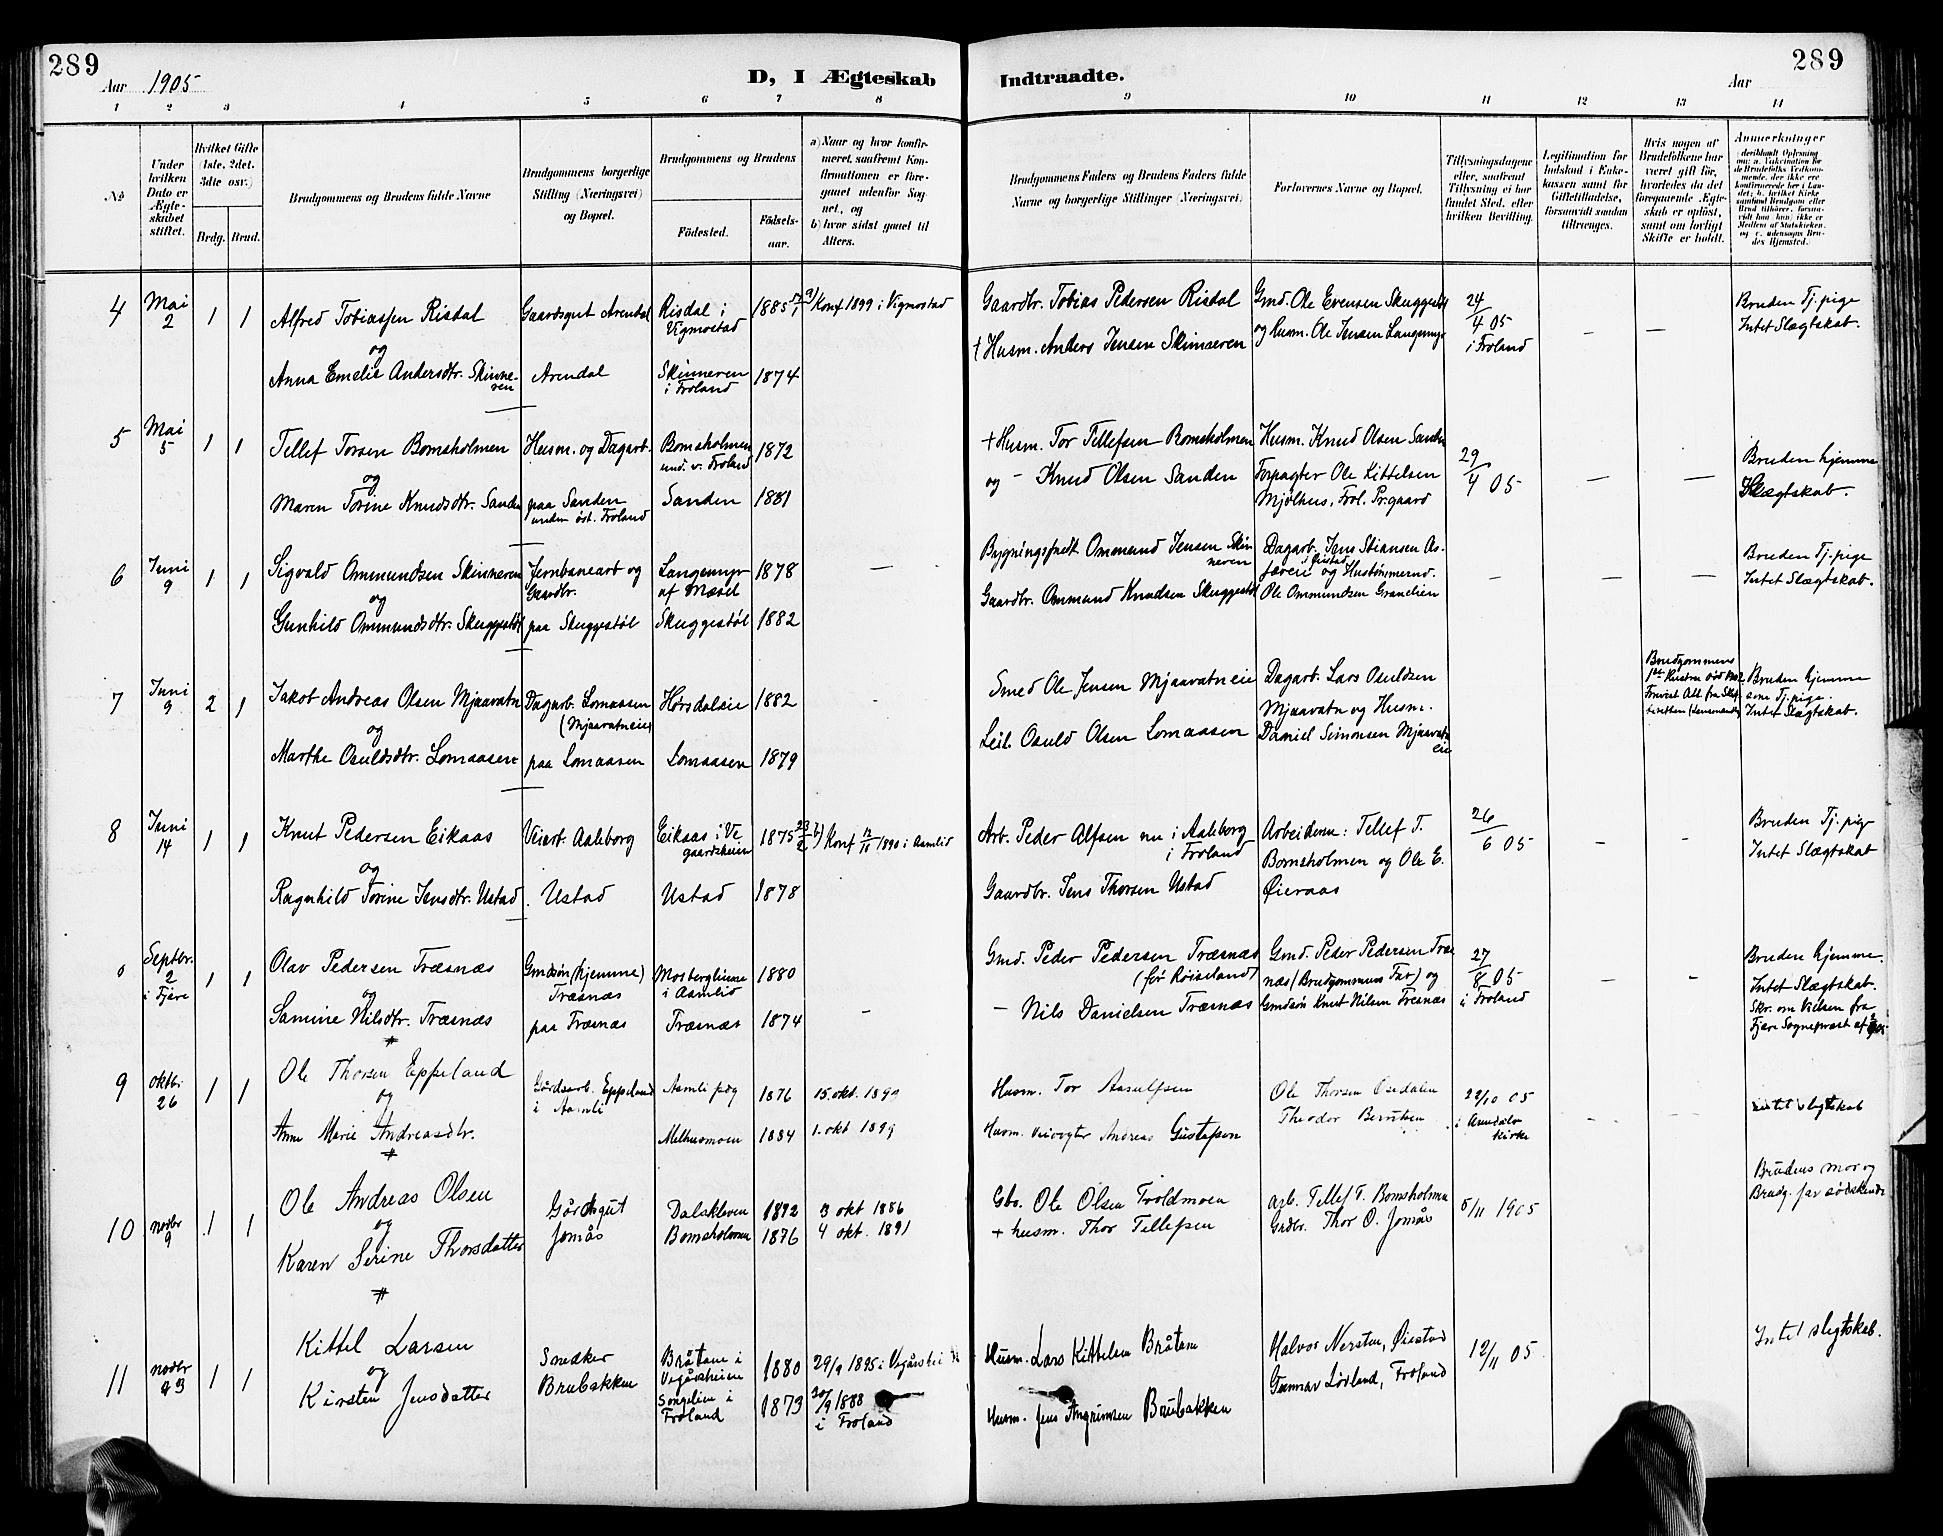 289
Aar 1905
D, I Ægteskab
Indtraadte.
Aar
289
1 2 3 4 5 6 7 8 9 10 11 12 13 14
No
Under hvilken Dato er Ægteskabet stiftet.
Hvilket Gifte (1ste, 2det, 3die osv.)
Brdg. Brud.
Brudgommens og Brudens fulde Navne
Brudgommens borgerlige Stilling (Næringsvei) og Bopæl.
Brudgommens og Brudens
Födested.
Födselsaar.
a) Naar og hvor konfirmeret, saafremt Konfirmationen er foregaaet udenfor Sognet, og
b) hvor sidst gaaet til Alters.
Brudgommens Faders og Brudens Faders fulde Navne og borgerlige Stillinger (Næringsvei)
Forlovernes Navne og Bopæl.
Tillysningsdagene eller, saafremt Tillysning ei har fundet Sted, efter hvilken Bevilling.
Legitimation for Indskud i Enkekassen samt for Giftetilladelse, forsaavidt saadan tiltrænges.
Hvis nogen af Brudefolkene har været gift før, hvorledes da det foregaaende Ægteskab er opløst, samt om lovligt Skifte er holdt.
Anmerkninger
4
Mai 2
1 1
Alfred Tobiassen Risdal
og
Anna Emelie Andersdtr. Skinneren
Gaardsgut Arendal
Arendal
Risdal i Vigmostad
Skinneren i Froland
1885
1874
a) Konf 1899 i Vigmostad
Gaardbr. Tobias Pedersen Risdal
† Husm. Anders Jensen Skinneren
Gmd. Ole Evensen Skuggestøl
og husm. Ole Jensen Langemyr
24/4 05
i Froland
Bruden Tj.pige
Intet Slægtskab.
5
Mai 5
1 1
Tellef Torsen Bomsholmen
og
Maren Torine Knudsdtr. Sanden
Husm. og Dagarb.
paa Sanden
under øst. Froland
Bomsholmen
und. v. Froland
Sanden
1872
1881
+ Husm. Tor Tellefsen Bomsholmen
og - Knud Olsen Sanden
Husm. Knud Olsen Sanden
Forpagter Ole Kittelsen
Mjølhus, Frol. Pr.gaard
29/4 05
Bruden hjemme
Slægtskab.
6
Juni 9
1 1
Sigvald Ommundsen Skinneren
og
Gunhild Ommundsdtr. Skuggestøl
Jernbanearb og
Gaardbr.
paa Skuggestøl
Langemyr
af Mæsel
Skuggestøl
1878
1882
Bygningsfredt. Ommund Jensen Skinneren
Gaardbr. Ommund Knudsen Skuggestøl
Dagarb. Jens Stiansen As-
Ole Ommundsen Granelien
Bruden Tj.pige
Intet Slægtskab.
7
Juni 9
2 1
Jakob Andreas Olsen Mjaavatn
og
Marthe Osuldsdtr. Lomaasen
Dagarb. Lomaasen
(Mjaavatneie)
paa Lomaasen
Hørsdaleie
Lomaasen
1882
1879
Smed Ole Jensen Mjaavatneie
Leil. Osuld Olsen Lomaasen
Dagarb. Lars Osuldsen
Mjaavatn og Husm.
Daniel Simonsen Mjaavatneie
Brudgommens
Bruden hjemme
som Tj.pige.
Intet Slægtskab.
8
Juni 14
1 1
Knut Pedersen Eikaas
og
Ragnhild Torine Jensdtr. Ustad
Veiarb. Aaleborg
Ustad
Eikaas i Vegaardsheien
Ustad
1875 23/2
1878
b) Konf 12/10 1890 i Aamlid
Arb. Peder Alfsen nu i Aaleborg
i Froland
Gaardbr. Jens Thorsen Ustad
Arbeiderne: Tellef T.
Bomsholmen og Ole E.
Øieraas
26/6 05
Bruden Tj.pig
Intet Slægtskab
Septbr. 2
i Fjære
1 1
Olav Pedersen Træsnæs
og
Samine Nilsdtr. Træsnæs
Gmdsøn (hjemme)
Træsnæs
paa Træsnæs
Mosberglierne
i Aamlid
Træsnæs
1880
1874
Gmd. Peder Pedersen Træsnæs
(før Røiseland)
- Nils Danielsen Træsnæs
Gmd. Peder Pedersen Træsnæs (Brudgommens Far) og
Gmdsøn Knut Nilsen Træsnæs
27/8 05
i Froland
Bruden hjemme.
Intet Slægtskab.
Skr. om Vielsen fra
Fjære Sogneprest af
9
oktbr. 26
1 1
Ole Thorsen Eppeland
og
Anne Marie Andreasdtr.
Gårdsarb. Eppeland
i Aamli
Aamli pæg
Melhusmoen
1876
1884
15. okt. 1890
1. okt 1899
Husm. Tor Aasulfsen
Husm. veivogter Andreas Gustafsen
Ole Thorsen Osedalen
Theodor Berntsen
22/10 05
i Arendals
kirke
intet slegtskab
10
novbr 9
1 1
Ole Andreas Olsen
og
Karen Serine Thorsdatter
Gårdsgut
Jomås
Dalskleven
Bomsholmen
1872
1876
3 okt 1886
4 okt. 1891
Gbr. Ole Olsen Troldmoen
+ husm. Thor Tellefsen
arb. Tellef T. Bomsholmen
Grdbr. Thor O. Jomås
5/11 1905
Brudens mor og
Brudg. far södskende
11
novbr 23
1 1
Kittel Larsen
og
Kirsten Jensdatter
Snedker
Brubakken
Bråtane i
Vegårsheien
Songelien i
Froland
1880
1873
29/9 1895 i Vegårshei
30/9 1888
i Froland
Husm. Lars Kittelsen Bråtane
Husm. Jens Angrimsen Brubakken
Halvor Nersten, Øiestad
Gunnar Løvland, Froland
12/11 05.
Intet slegtskab.